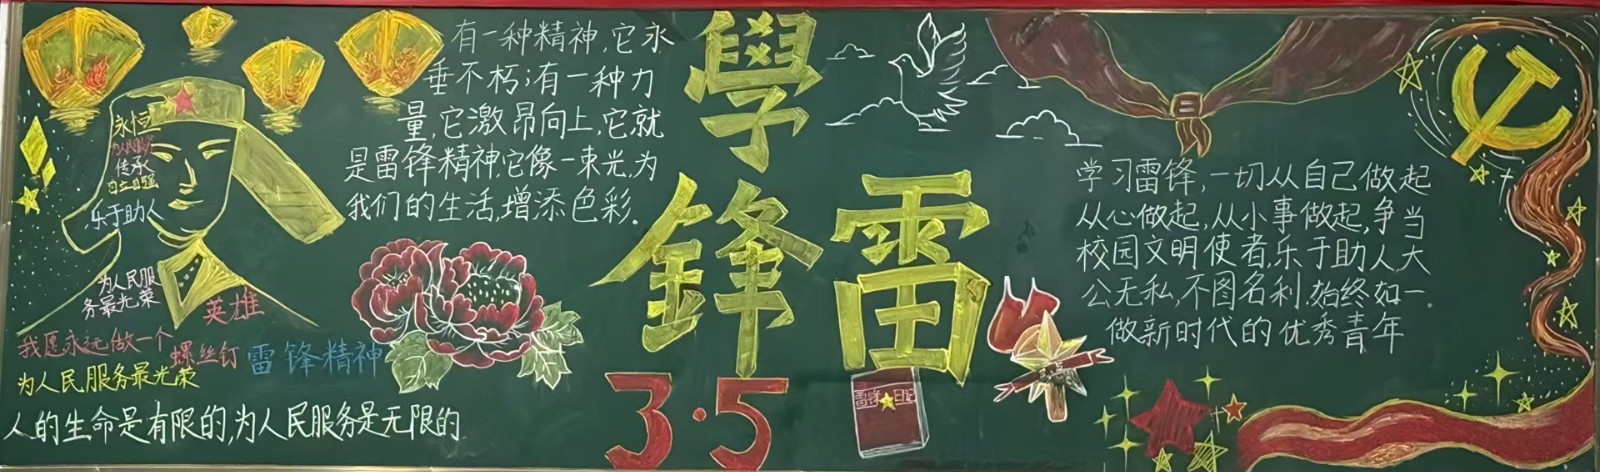 永恒
为人民服务
传承
自立自强
乐于助人
为人民服
务最光荣
英雄
我愿永远做一个
螺丝钉
雷锋精神
为人民服务最光荣
人的生命是有限的,为人民服务是无限的
有一种精神,它永
垂不朽;有一种力
量,它激昂向上,它就
是雷锋精神.它像一束光,为
我们的生活,增添色彩.
學
雷鋒
3·5
雷锋日记
学习雷锋,一切从自己做起
从心做起,从小事做起,争当
校园文明使者,乐于助人,大
公无私,不图名利,始终如一.
做新时代的优秀青年